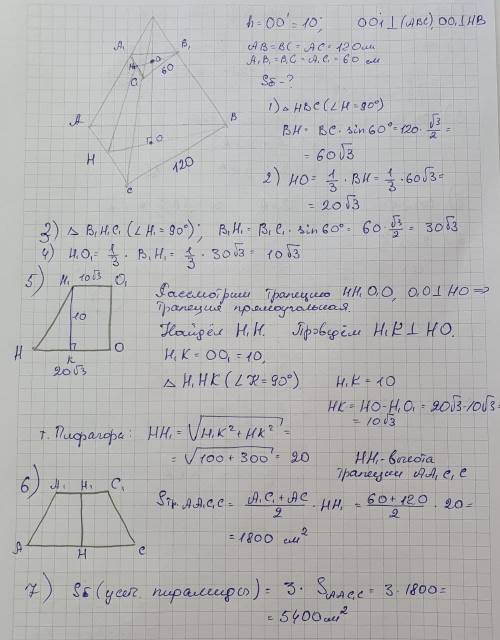 A₁
B₁
H₁
O₁
C₁
60
A
B
O
H
120
C
h = OO' = 10; OO1 ⊥ (ABC), OO1 ⊥ HB
AB = BC = AC = 120 см
A₁B₁ = B₁C₁ = A₁C₁ = 60 см
Sб - ?
1) △ HBC (∠H = 90°)
BH = BC · sin 60° = 120 · √3/2 =
= 60√3
2) HO = 1/3 · BH = 1/3 · 60√3 =
= 20√3
3) △ B₁H₁C₁ (∠H₁ = 90°); B₁H₁ = B₁C₁ · sin 60° = 60 · √3/2 = 30√3
4) H₁O₁ = 1/3 · B₁H₁ = 1/3 · 30√3 = 10√3
5) H₁ 10√3 O₁
10
H K O
20√3
Рассмотрим трапецию HH₁O₁O, O₁O ⊥ HO ⇒
трапеция прямоугольная.
Найдём H₁H. Проведём H₁K ⊥ HO.
H₁K = OO₁ = 10,
△ H₁HK (∠K = 90°) H₁K = 10
HK = HO - H₁O₁ = 20√3 - 10√3 =
= 10√3
т. Пифагора: HH₁ = √(H₁K² + HK²) =
= √(100 + 300) = 20
HH₁ - высота
трапеции AA₁C₁C
6) A₁ H₁ C₁
A H C
Sтр. AA₁C₁C = (A₁C₁ + AC)/2 · HH₁ = (60 + 120)/2 · 20 =
= 1800 см²
7) Sб (усеч. пирамиды) = 3 · S AA₁C₁C = 3 · 1800 =
= 5400 см²